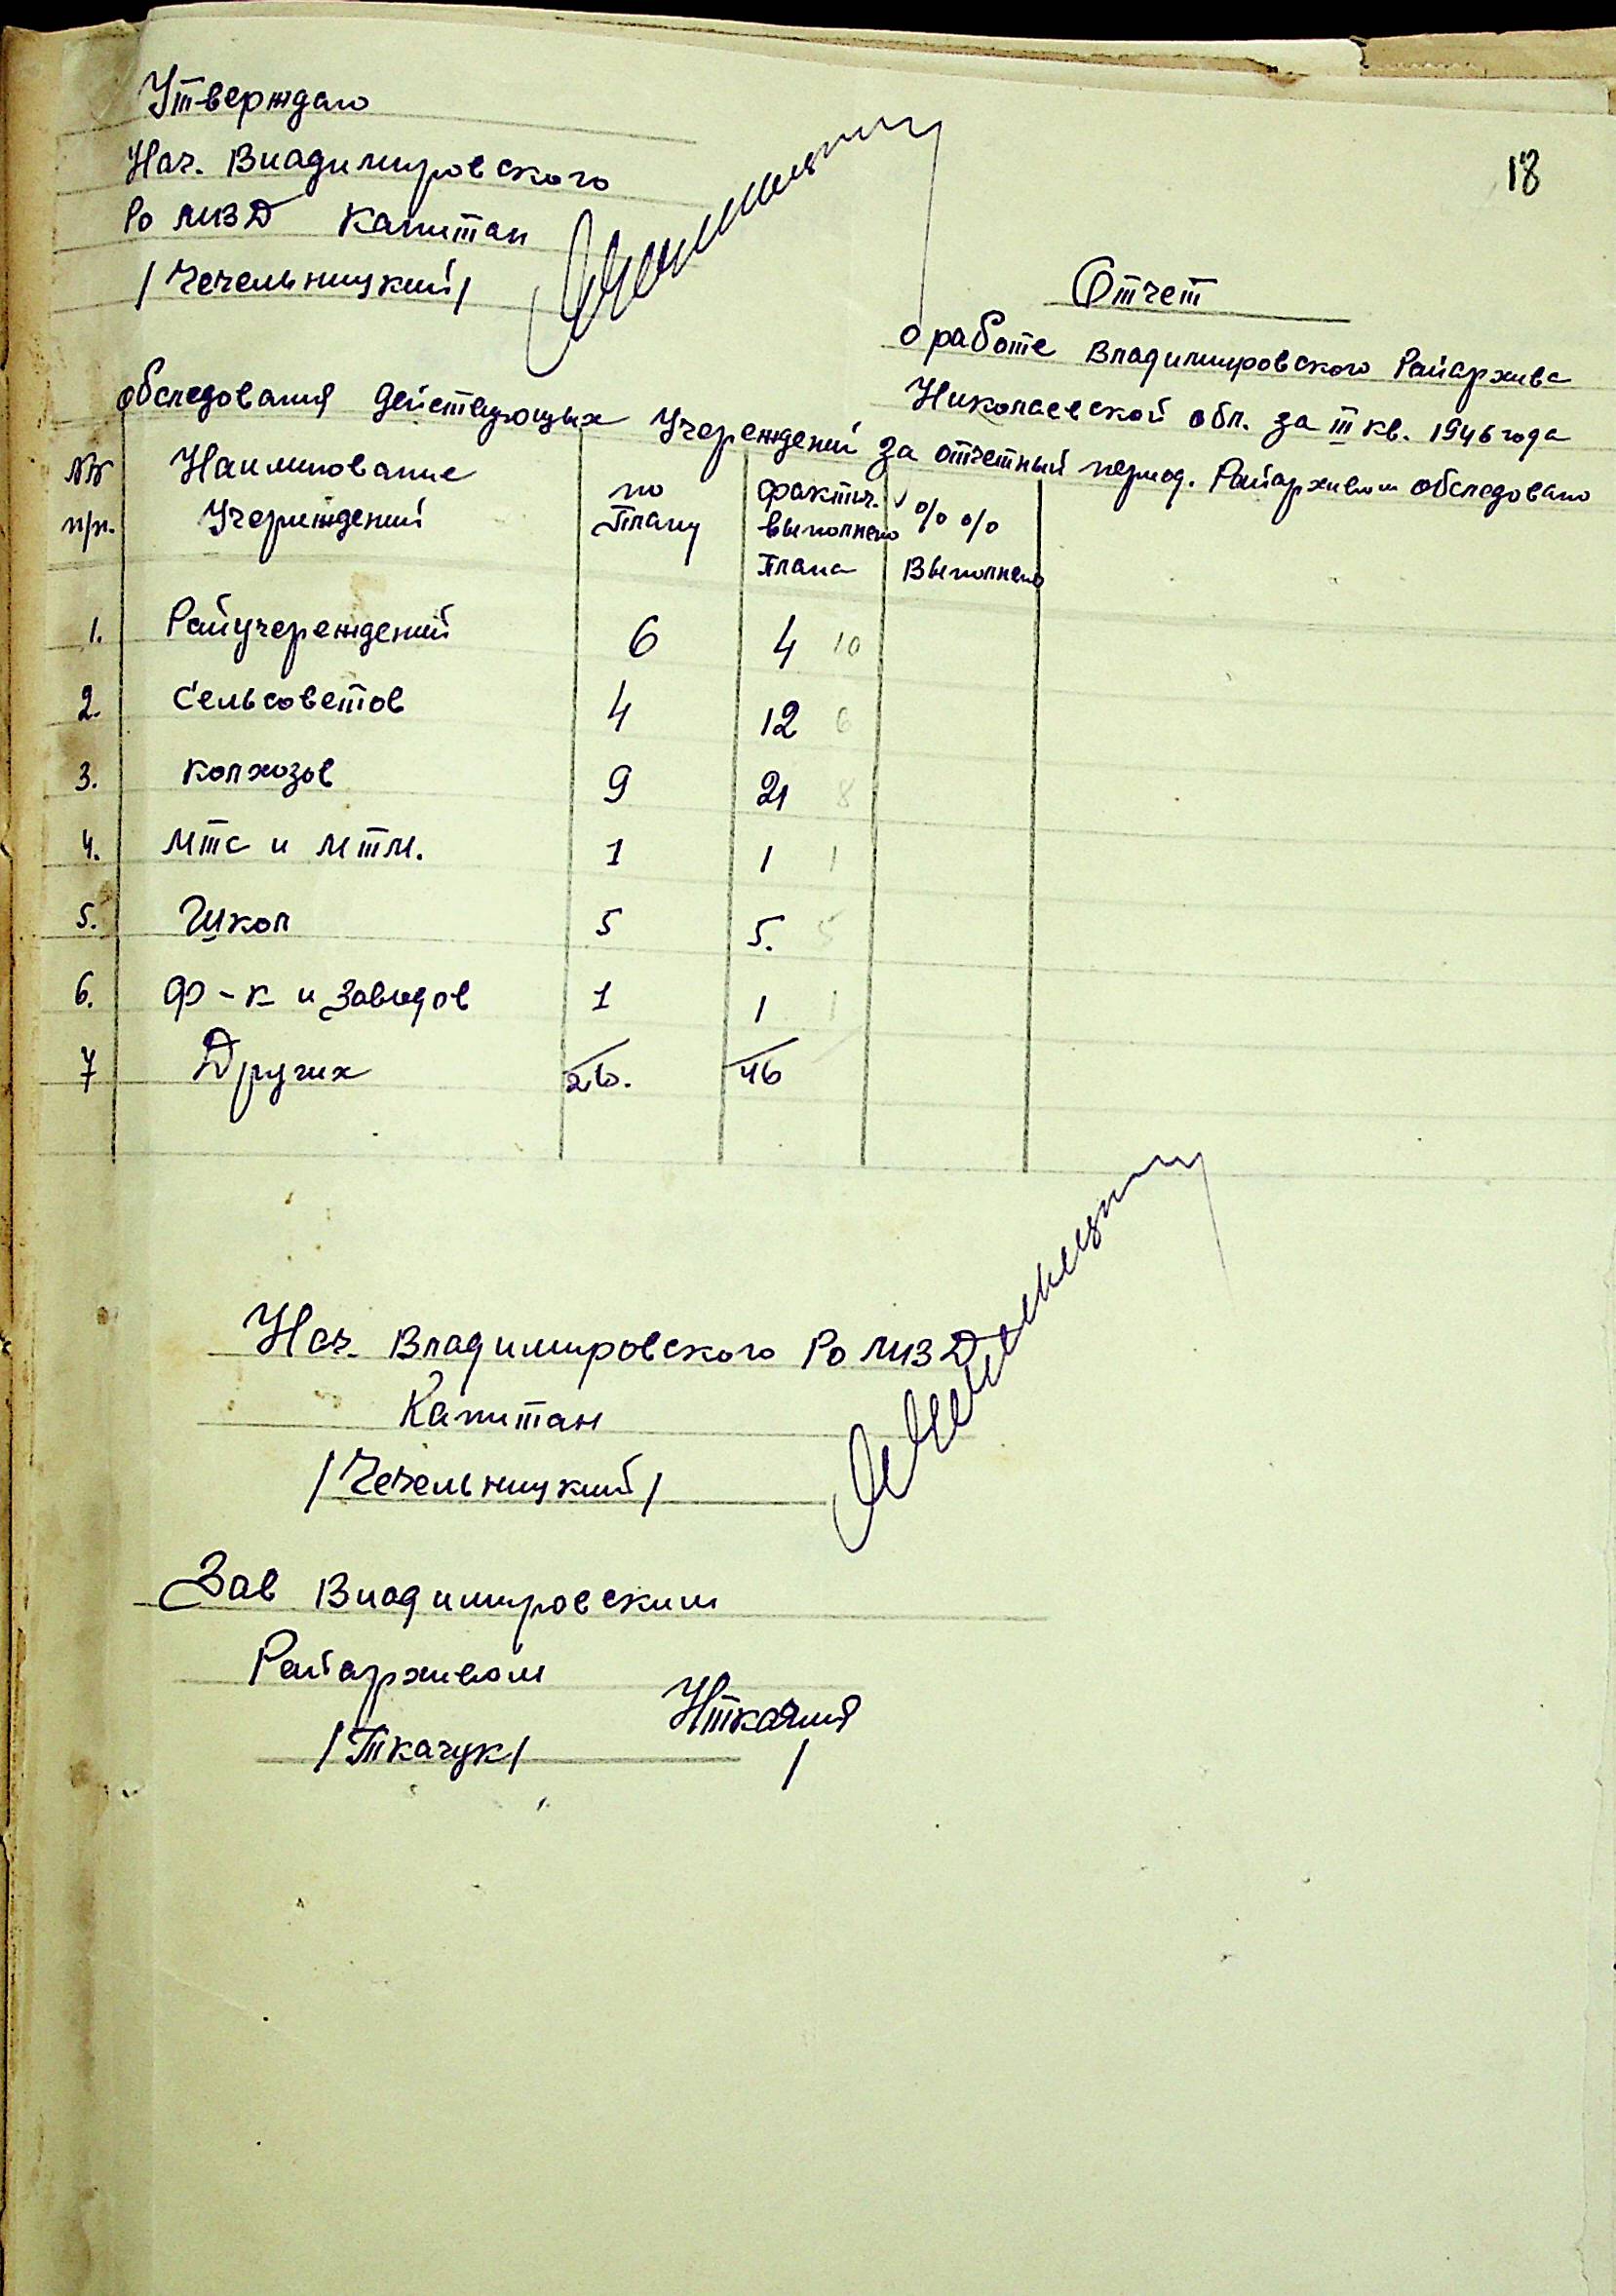 18
Утверждаю
Нач. Владимировского
Ро МВД Капитан
/Чечельницкий/
Отчет
о работе Владимировского Райархива
Николаевской обл. за III кв. 1946 года
обследования действующих Учереждений за отчетный период. Райархивом обследовано
№№ п/п. Наиминование Учереждений по Плану фактич. выполнено плана % % Выполнено
1. Райучереждений 6 4 10
2. Сельсоветов 4 12 6
3. Колхозов 9 21 8
4. МТС и МТМ. 1 1 1
5. Школ 5 5. 5
6. Ф-к и Заводов 1 1 1
7 Других 26. 46
Нач. Владимировского Ро МВД
Капитан
/Чечельницкий/
Зав Владимировским
Райархивом
/Ткачук/